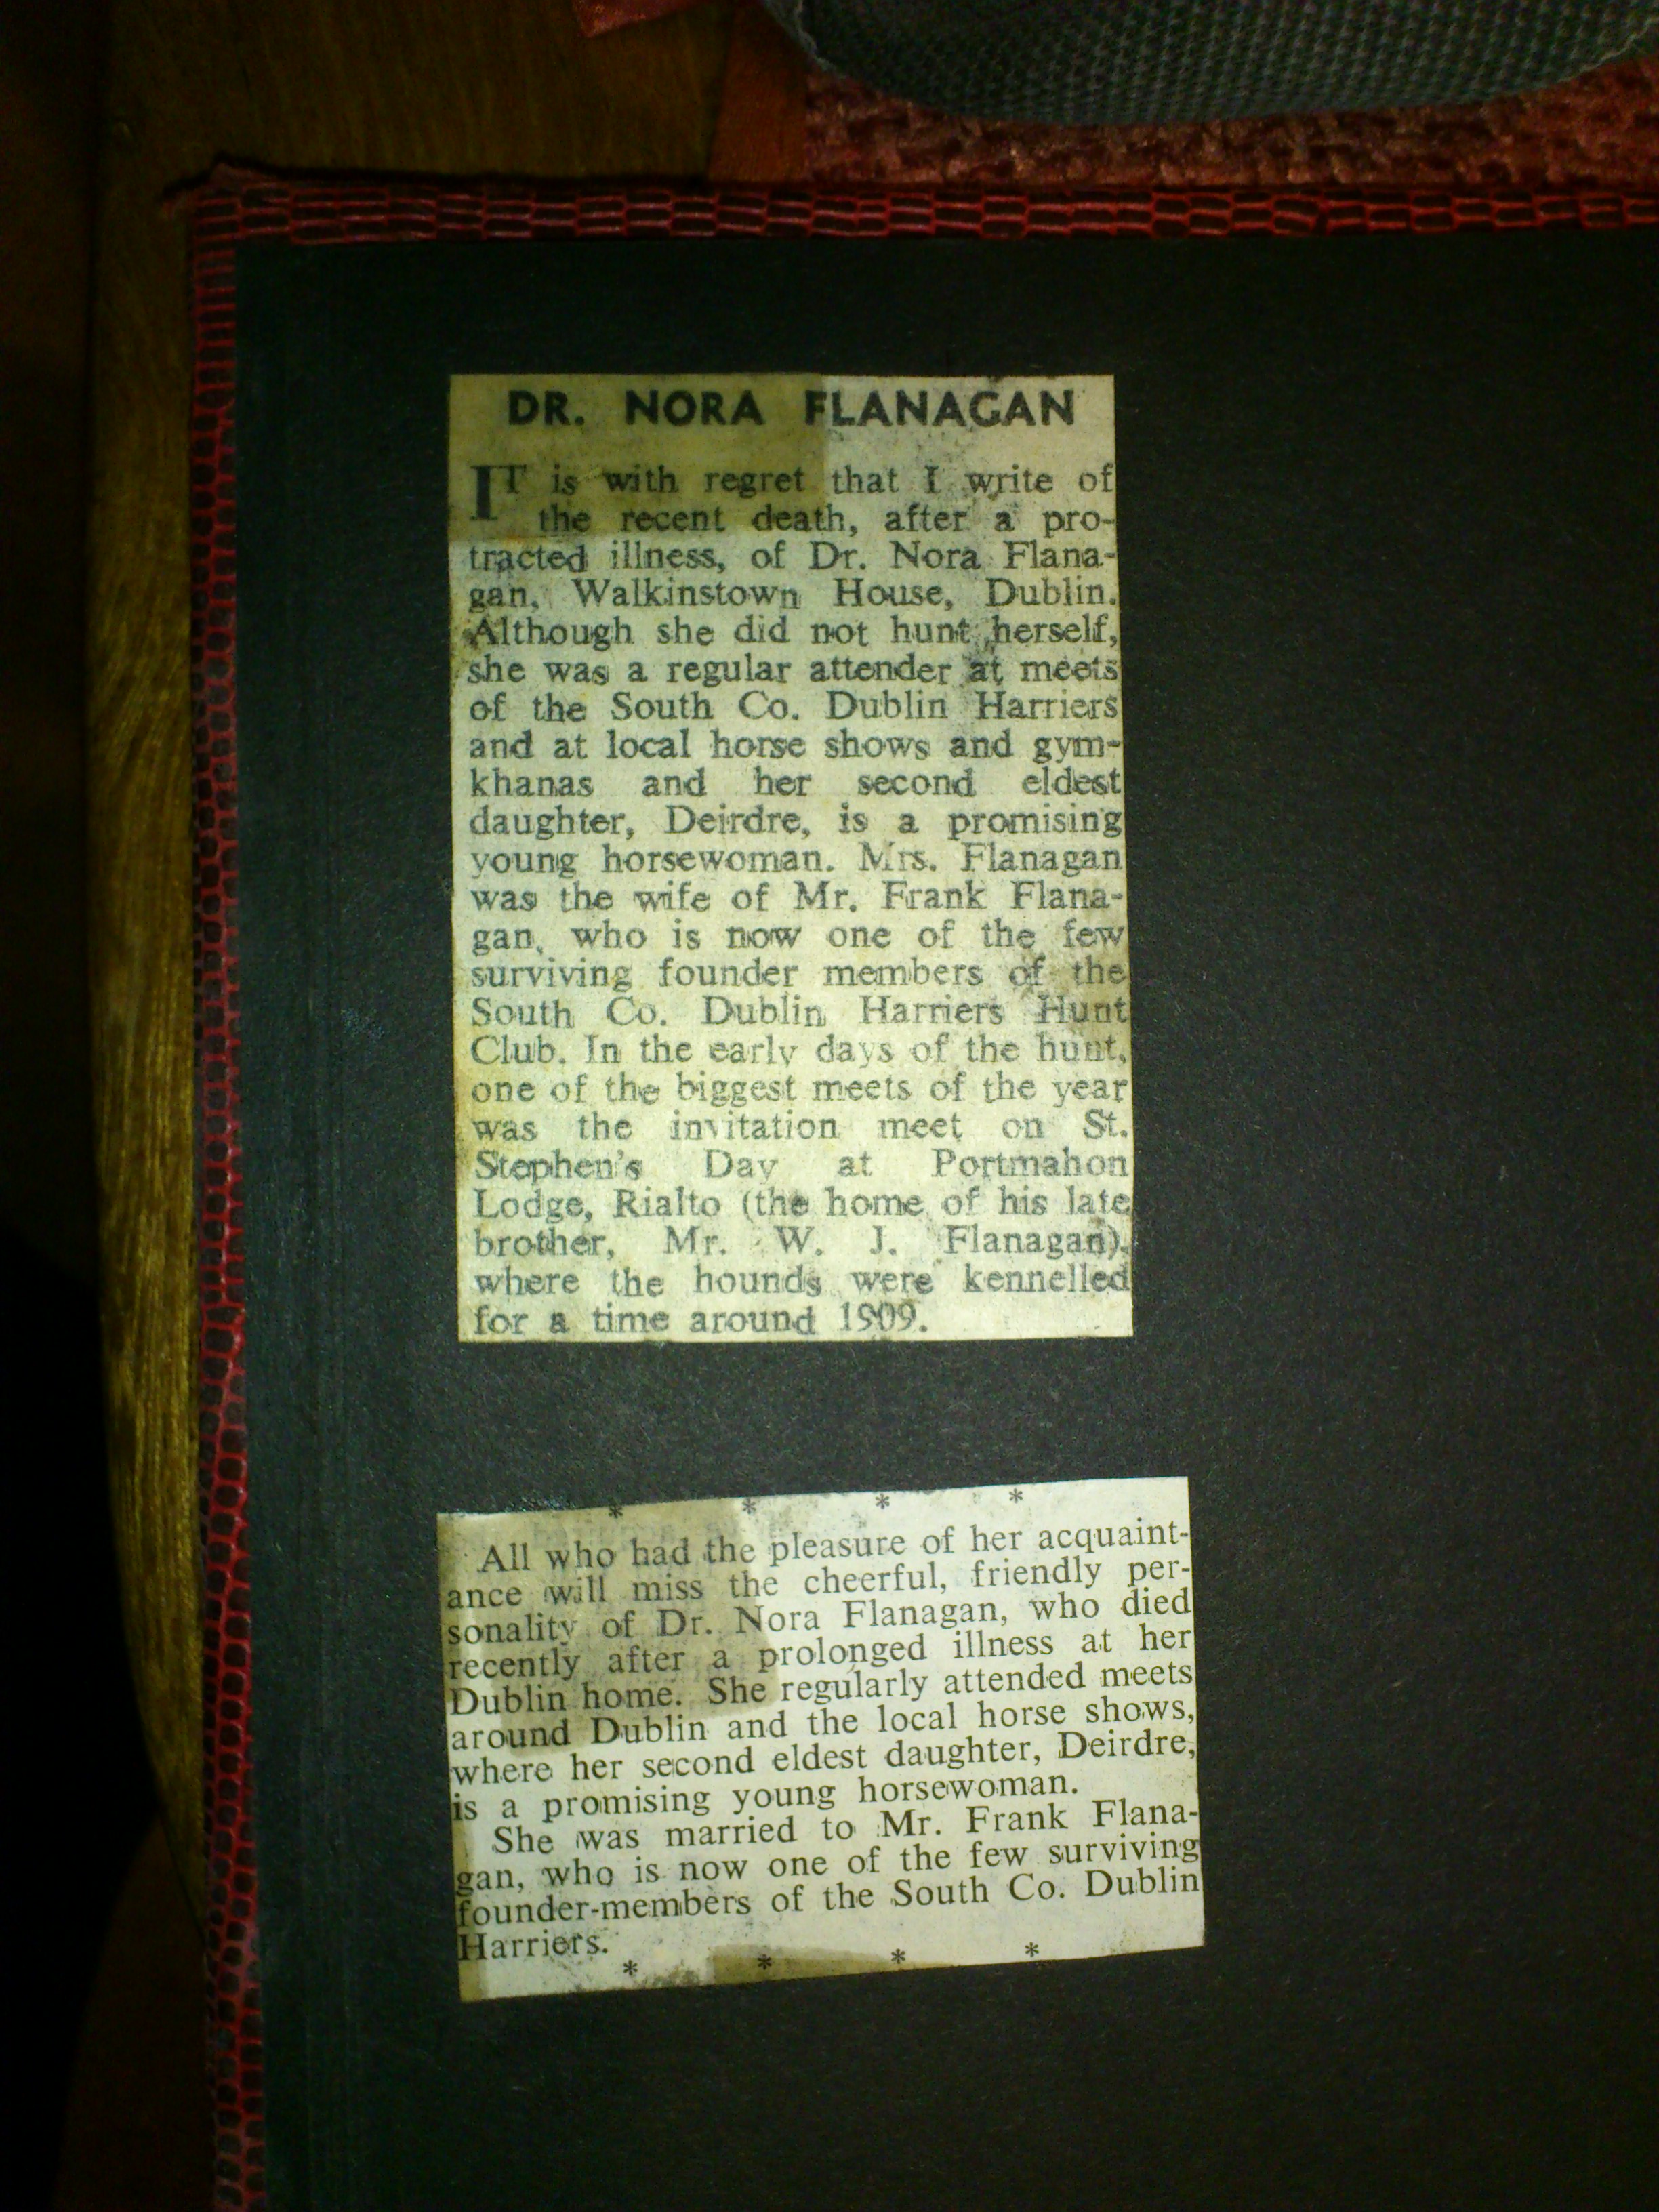 DR. NORA FLANAGAN
IT is with regret that I write of
the recent death, after a pro-
tracted illness, of Dr. Nora Flana-
gan, Walkinstown House, Dublin.
Although she did not hunt herself,
she was a regular attender at meets
of the South Co. Dublin Harriers
and at local horse shows and gym-
khanas and her second eldest
daughter, Deirdre, is a promising
young horsewoman. Mrs. Flanagan
was the wife of Mr. Frank Flana-
gan, who is now one of the few
surviving founder members of the
South Co. Dublin Harriers Hunt
Club. In the early days of the hunt,
one of the biggest meets of the year
was the invitation meet on St.
Stephen's Day at Portmahon
Lodge, Rialto (the home of his late
brother, Mr. W. J. Flanagan),
where the hounds were kennelled
for a time around 1909.
* * * *
All who had the pleasure of her acquaint-
ance will miss the cheerful, friendly per-
sonality of Dr. Nora Flanagan, who died
recently after a prolonged illness at her
Dublin home. She regularly attended meets
around Dublin and the local horse shows,
where her second eldest daughter, Deirdre,
is a promising young horsewoman.
She was married to Mr. Frank Flana-
gan, who is now one of the few surviving
founder-members of the South Co. Dublin
Harriers.
* * * *